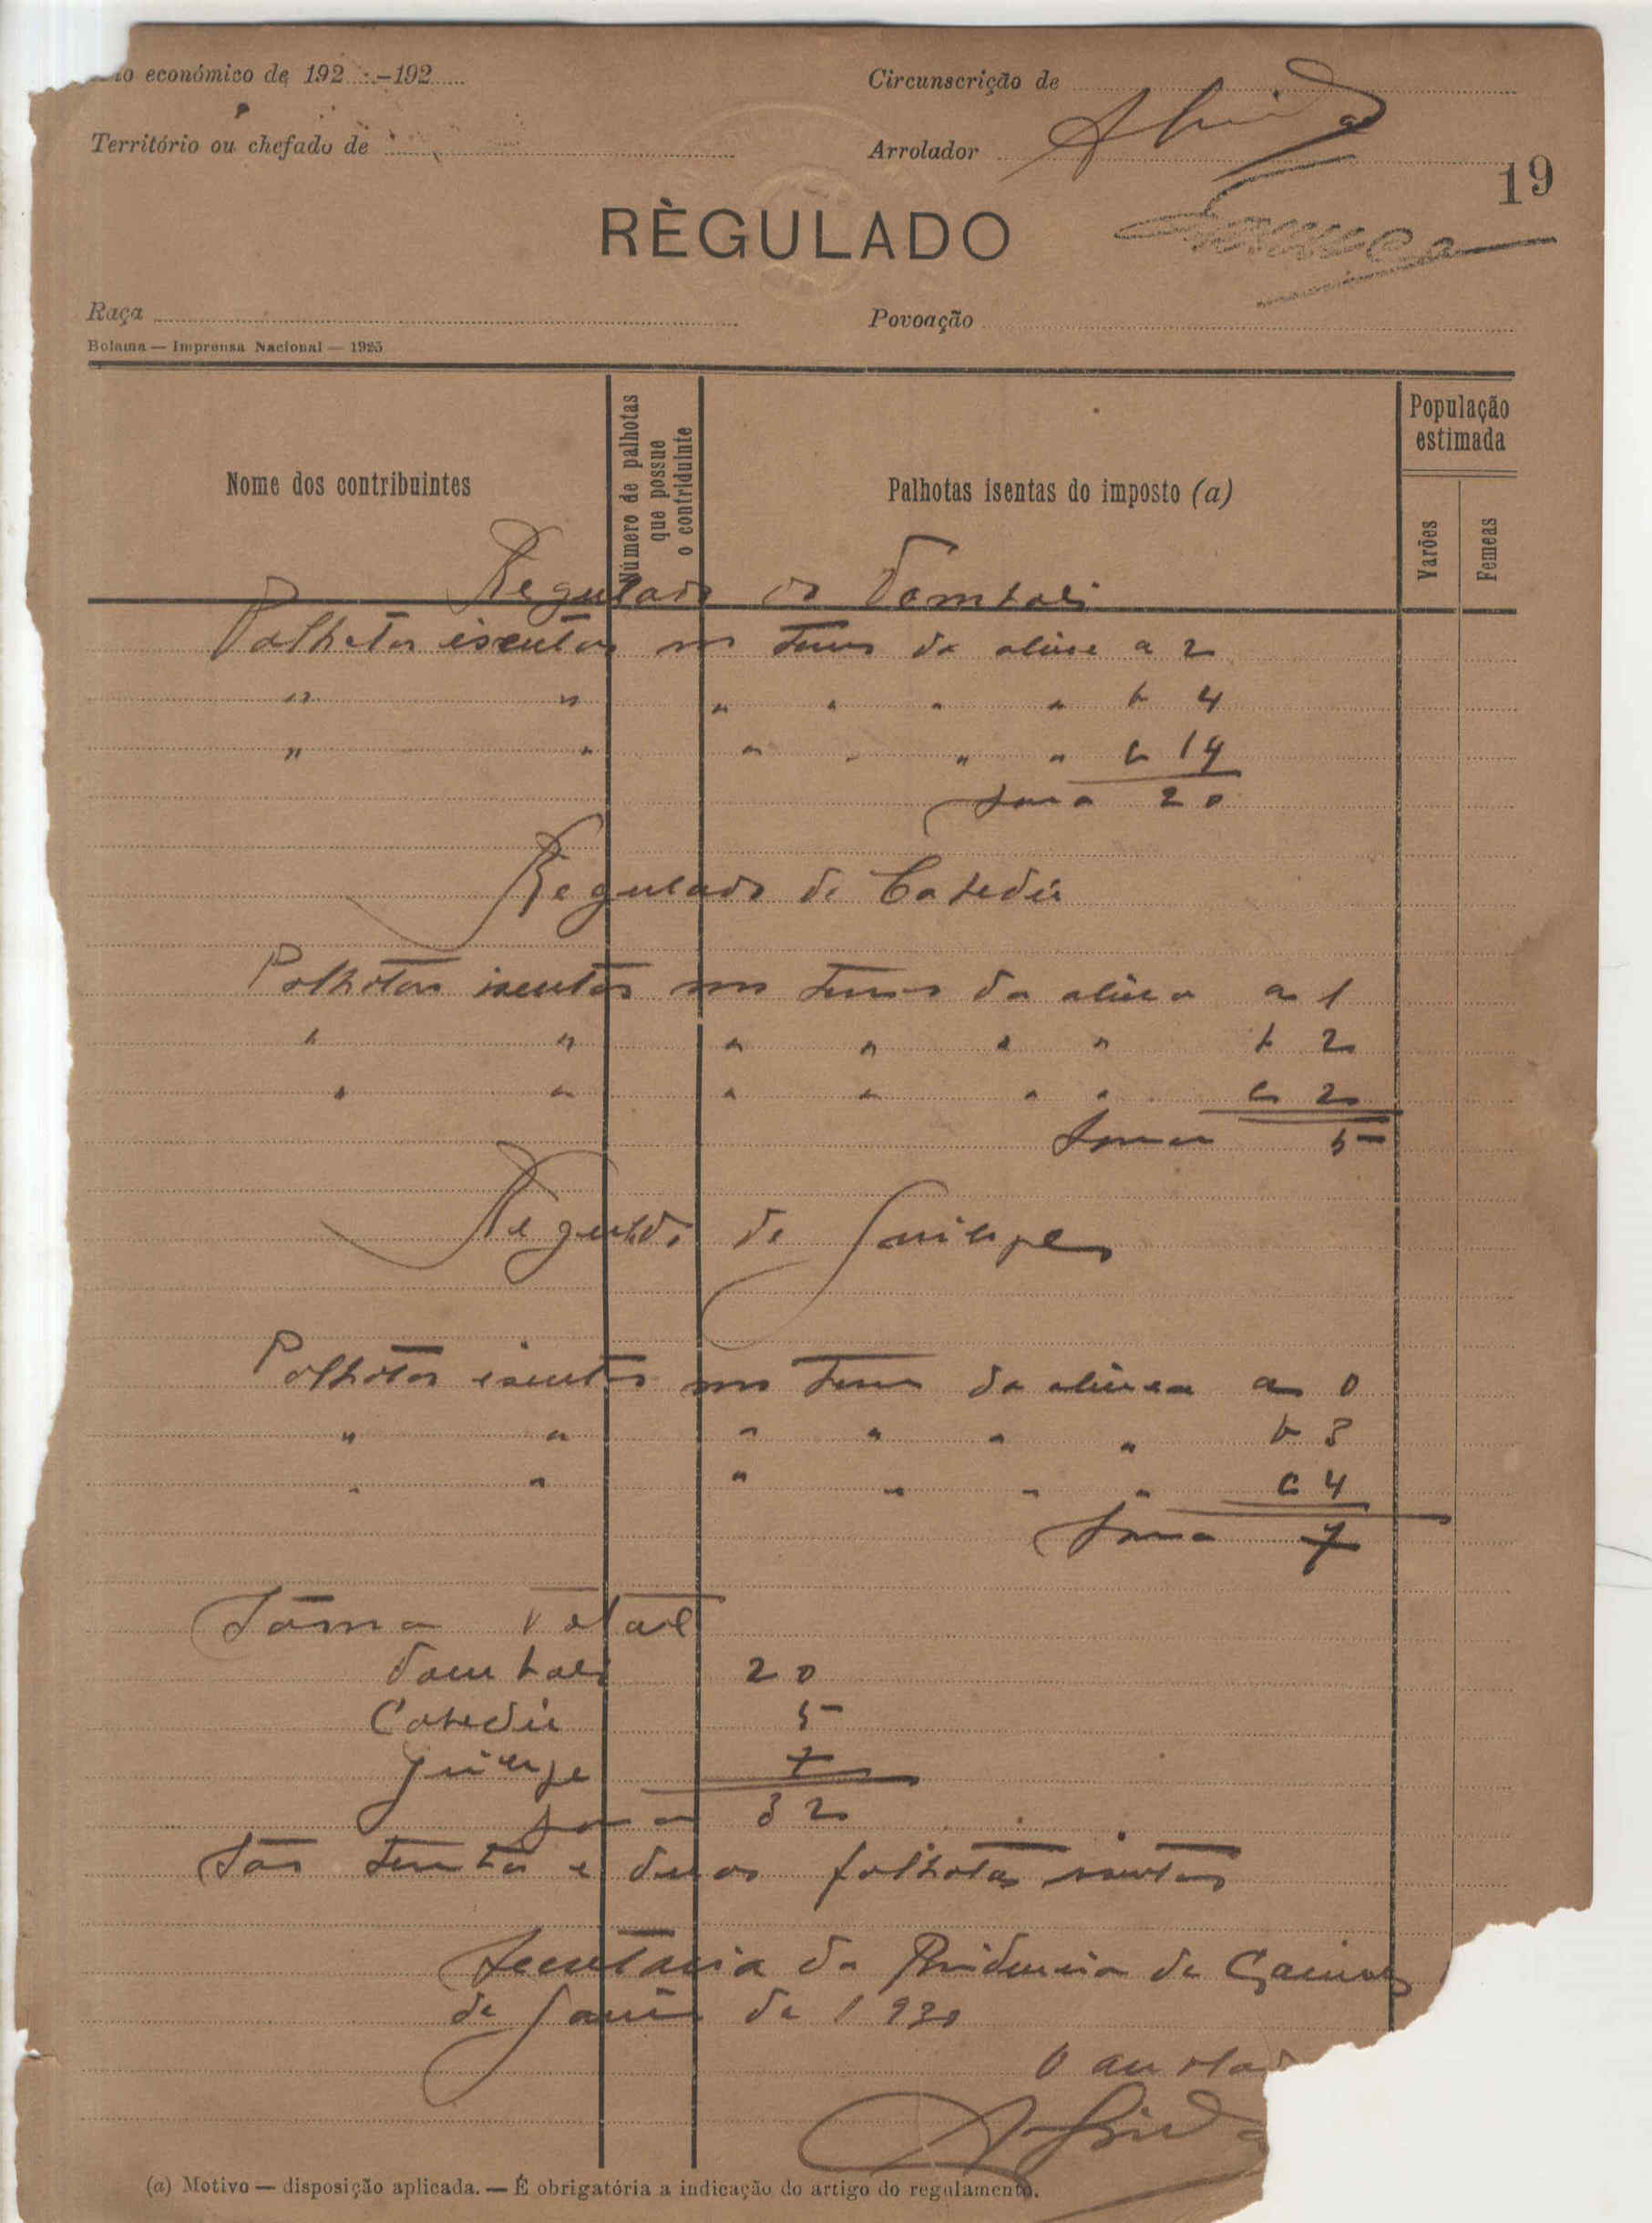 económico de 192 -192
Circunscrição de
Território ou chefado de
Arrolador
19
RÈGULADO
Raça
Povoação
Bolama — Imprensa Nacional — 1925
Nome dos contribuintes
Número de palhotas que possue o contriduinte
Palhotas isentas do imposto (a)
População estimada
Varões
Femeas
Regulado de
Palhotas isentas nos termos da alinea a 2
" " " " " " b 4
" " " " " " c 14
Soma 20
Regulado de
Palhotas isentas nos termos da alinea a 1
" " " " " " b 2
" " " " " " c 2
Soma 5
Regulado de
Palhotas isentas nos termos da alinea a 0
" " " " " " b 3
" " " " " " c 4
Soma 7
Sôma total
20
5
7
Soma 32
São trinta e duas palhotas isentas
Secretaria da Residencia de
de de 1930
O
(a) Motivo — disposição aplicada. — É obrigatória a indicação do artigo do regulamento.